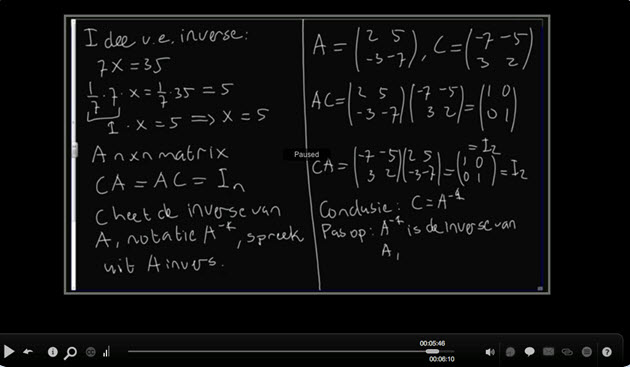 Idee v.e. inverse:
7x = 35
1/7 · 7 · x = 1/7 · 35 = 5
1 · x = 5 ⟹ x = 5
A n×n matrix
CA = AC = Iₙ
C heet de inverse van
A, notatie A⁻¹, spreek
uit A invers.
A = (2 5; -3 -7), C = (-7 -5; 3 2)
AC = (2 5; -3 -7)(-7 -5; 3 2) = (1 0; 0 1)
= I₂
CA = (-7 -5; 3 2)(2 5; -3 -7) = (1 0; 0 1) = I₂
Conclusie: C = A⁻¹
Pas op: A⁻¹ is de inverse van
A,
Paused
00:05:46
00:06:10